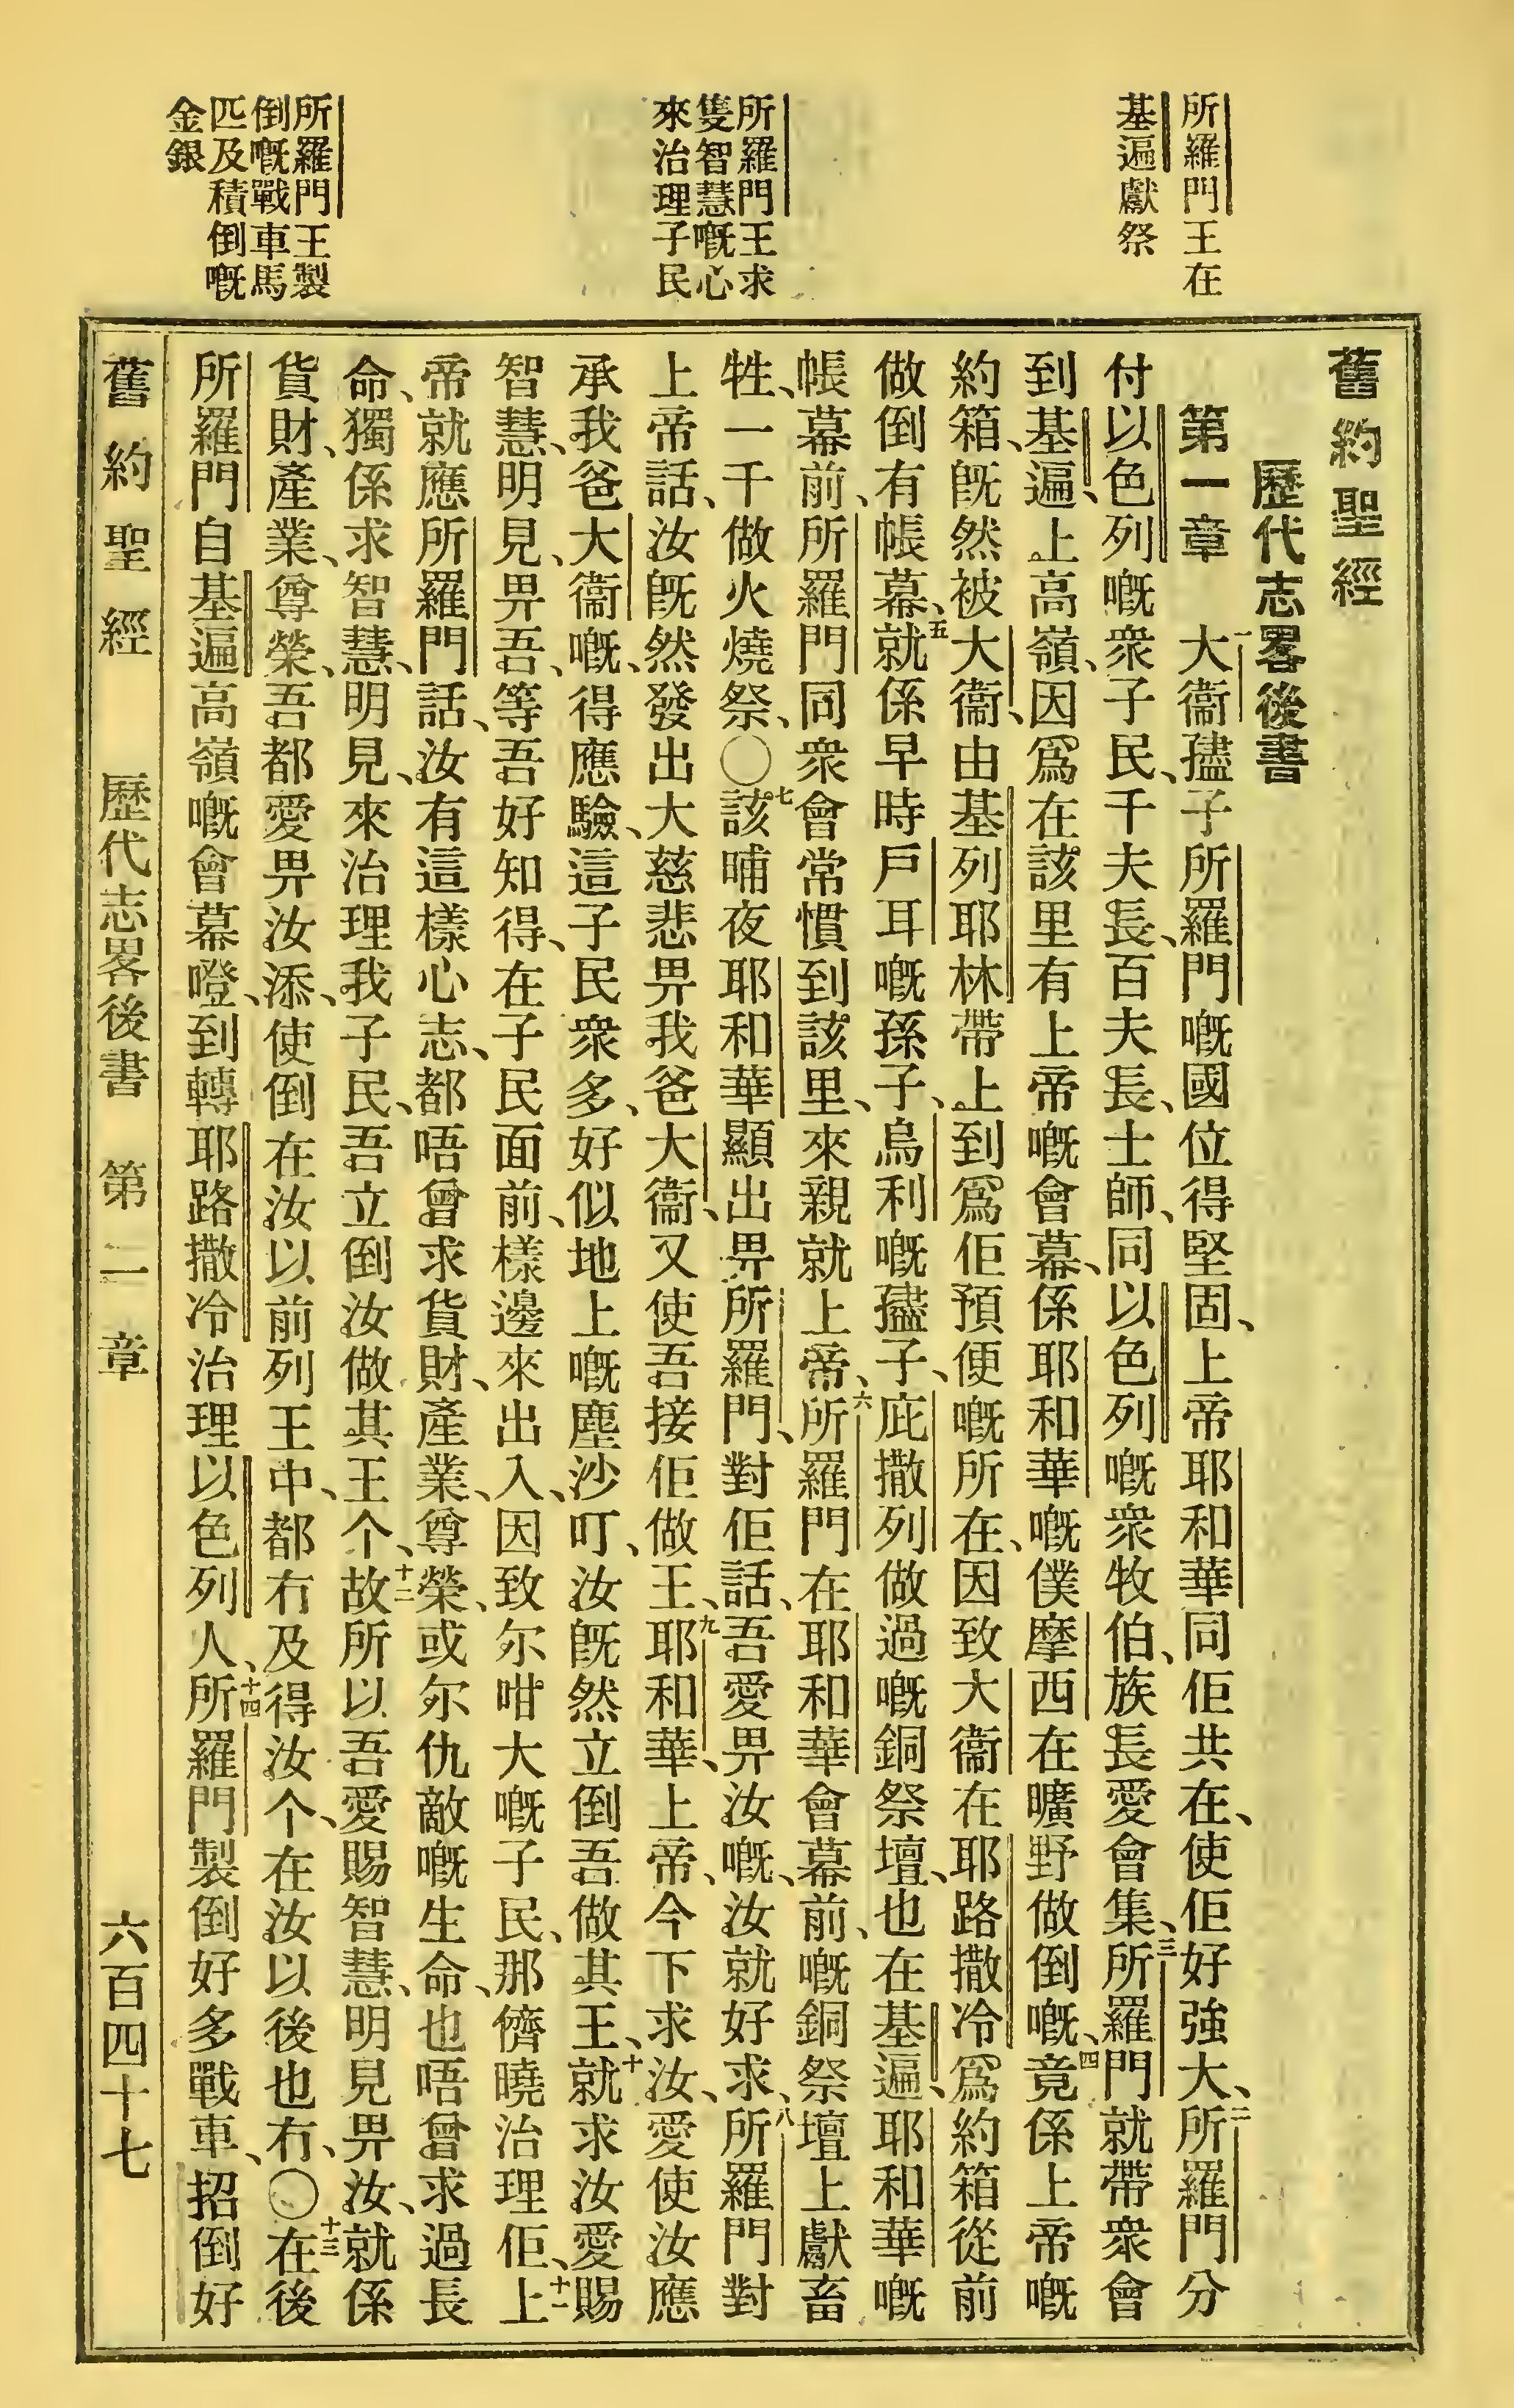 所羅門王在
基遍獻祭
所羅門王求
隻智慧嘅心
來治理子民
所羅門王製
倒嘅戰車馬
匹及積倒嘅
金銀
舊約聖經
歷代志畧後書
第一章 一大衞孻子所羅門嘅國位得堅固、上帝耶和華同佢共在、使佢好強大、二所羅門分
付以色列嘅衆子民、千夫長、百夫長、士師、同以色列嘅衆牧伯、族長愛會集、三所羅門就帶衆會
到基遍、上高嶺、因爲在該里有上帝嘅會幕、係耶和華嘅僕摩西在曠野做倒嘅、四竟係上帝嘅
約箱、旣然被大衞、由基列耶林帶上到爲佢預便嘅所在、因致大衞在耶路撒冷爲約箱從前
做倒有帳幕、五就係早時戶耳嘅孫子、烏利嘅孻子、庇撒列做過嘅銅祭壇、也在基遍、耶和華嘅
帳幕前、所羅門同衆會常慣到該里、來親就上帝、六所羅門在耶和華會幕前、嘅銅祭壇上獻畜
牲、一千做火燒祭、〇七該晡夜耶和華顯出畀所羅門、對佢話、吾愛畀汝嘅、汝就好求、八所羅門對
上帝話、汝旣然發出大慈悲畀我爸大衞、又使吾接佢做王、九耶和華、上帝、今下求汝、愛使汝應
承我爸大衞嘅、得應驗、這子民衆多、好似地上嘅塵沙叮、汝旣然立倒吾做其王、十就求汝愛賜
智慧、明見、畀吾、等吾好知得、在子民面前、樣邊來出入、因致尔咁大嘅子民、那儕曉治理佢、十一上
帝就應所羅門話、汝有這樣心志、都唔曾求貨財、產業、尊榮、或尔仇敵嘅生命、也唔曾求過長
命、獨係求智慧、明見、來治理我子民、吾立倒汝做其王个、十二故所以吾愛賜智慧、明見畀汝、就係
貨財、產業、尊榮、吾都愛畀汝添、使倒在汝以前列王中、都冇及得汝个、在汝以後也冇、〇十三在後
所羅門自基遍高嶺嘅會幕嶝、到轉耶路撒冷治理以色列人、十四所羅門製倒好多戰車、招倒好
舊約聖經 歷代志畧後書 第一章 六百四十七